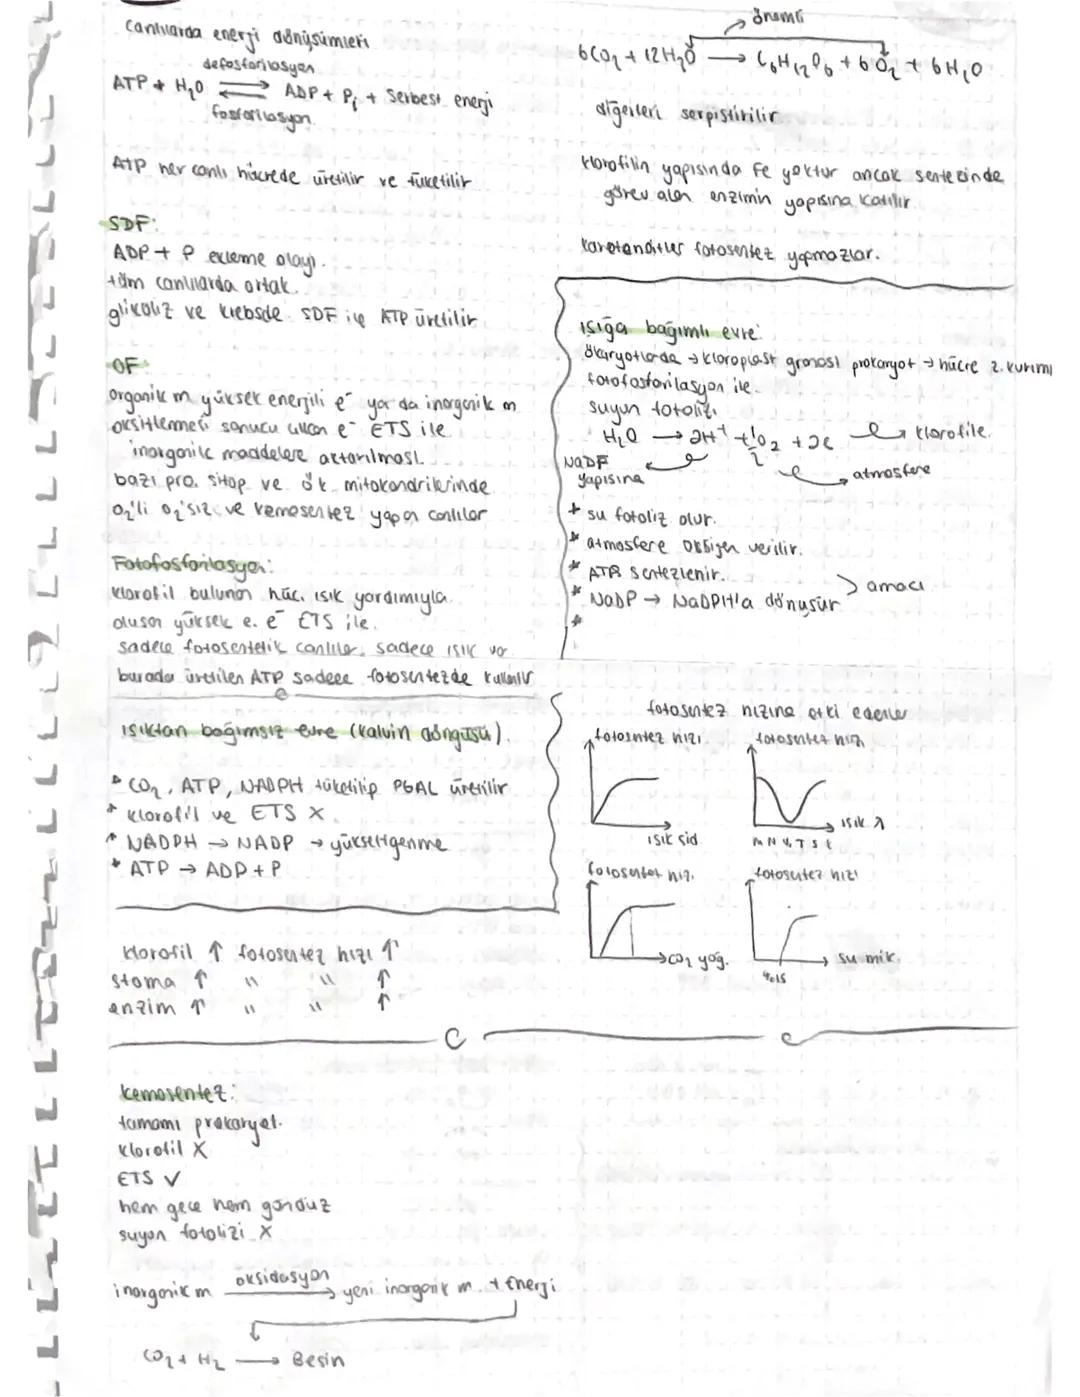 canlılarda enerji dönüşümleri
defosforilasyon
ATP + H₂O ⇌ ADP + Pᵢ + Serbest enerji
fosforilasyon
ATP her canlı hücrede üretilir ve tüketilir
SDF:
ADP + P ekleme olayı.
tüm canlılarda ortak.
glikoliz ve krebsde SDF ile ATP üretilir
OF
organik m yüksek enerjili e⁻ ya da inorganik m
oksitlenmesi sonucu çıkan e⁻ ETS ile
inorganik maddelere aktarılması.
bazı pro. sitop ve ök. mitokondrilerinde
O₂'li O₂'siz ve kemosentez yapan canlılar
Fotofosforilasyon:
klorofil bulunan hüc. ışık yardımıyla
oluşan yüksek e. e⁻ ETS ile.
sadece fotosentetik canlılar, sadece ışık var
burada üretilen ATP sadece fotosentezde kullanılır
ışıktan bağımsız evre (kalvin döngüsü)
* CO₂, ATP, NADPH tüketilip PGAL üretilir
* klorofil ve ETS X
* NADPH → NADP → yükseltgenme
* ATP → ADP + P
klorofil ↑ fotosentez hızı ↑
stoma ↑ " " ↑
enzim ↑ " " ↑
önemli
6CO₂ + 12H₂O → C₆H₁₂O₆ + 6O₂ + 6H₂O
diğerleri serpiştirilir
klorofilin yapısında Fe yoktur ancak sentezinde
görev alan enzimin yapısına katılır
karotenoitler fotosentez yapmazlar.
ışığa bağımlı evre:
ökaryotlarda → kloroplast granası prokaryot → hücre z. kıvrımı
fotofosforilasyon ile.
suyun fotolizi
H₂O → 2H⁺ + ½O₂ + 2e → klorofile.
NADP
yapısına
atmosfere
* su fotoliz olur.
* atmosfere oksijen verilir.
* ATP sentezlenir.
* NADP → NADPH'a dönüşür
> amacı
*
fotosentez hızına etki edenler
fotosentez hızı
ışık şid
fotosentez hızı
ışık λ
M N Y T S K
fotosentez hızı
CO₂ yoğ.
fotosentez hızı
su mik.
%15
kemosentez:
tamamı prokaryot.
klorofil X
ETS ✓
hem gece hem gündüz
suyun fotolizi X
oksidasyon
inorganik m → yeni inorganik m. + Enerji
CO₂ + H₂ → Besin